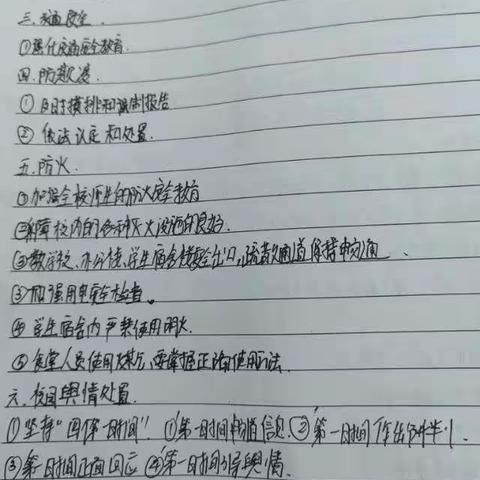 三.交通安全.
①强化交通安全教育.
四.防欺凌
①及时摸排和强制报告
②依法认定和处置.
五.防火.
①加强全校师生的防火安全教育
②保障校内的各种灭火设施的良好.
③教学楼、办公楼、学生宿舍楼安全出口,疏散通道保持畅通.
③加强用电安全检查。
④学生宿舍内严禁使用明火.
⑤食堂人员使用煤气,要掌握正确使用方法.
六.校园舆情处置.
①坚持"四个第一时间".①第一时间截留信息.②第一时间作出分析半1.
③第一时间正面回应④第一时间引导舆情.